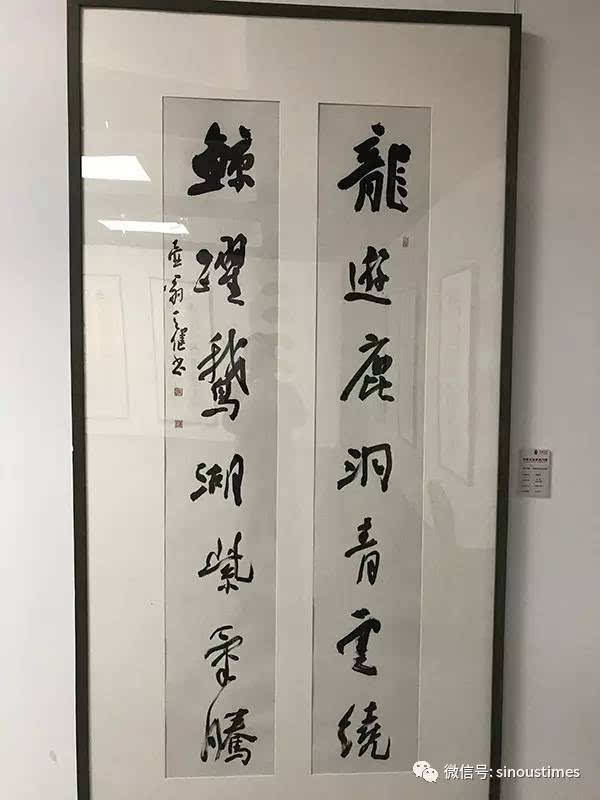 龍遊鹿洞青雲繞
鯨躍鵝湖紫氣騰
微信号: sinoustimes